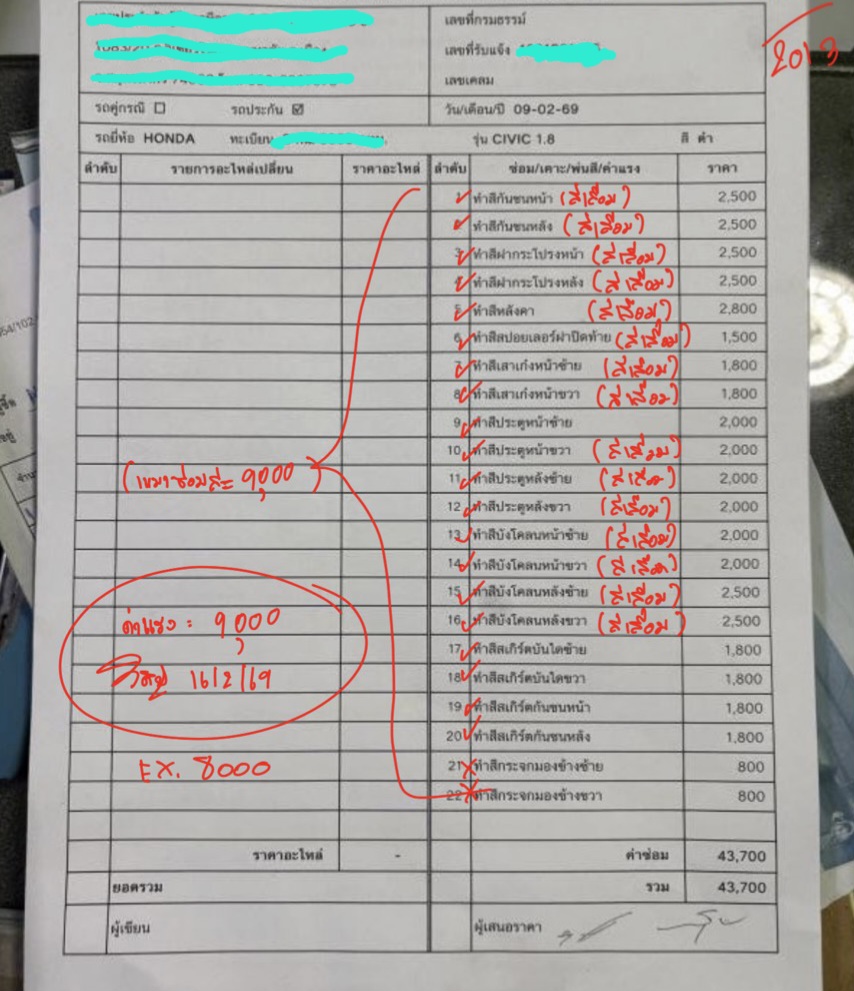 เลขที่กรมธรรม์
เลขที่รับแจ้ง
เลขเคลม
2013
รถคู่กรณี ☐ รถประกัน ☑ วัน/เดือน/ปี 09-02-69
รถยี่ห้อ HONDA ทะเบียน รุ่น CIVIC 1.8 สี ดำ
ลำดับ รายการอะไหล่เปลี่ยน ราคาอะไหล่ ลำดับ ซ่อม/เคาะ/พ่นสี/ค่าแรง ราคา
1 ทำสีกันชนหน้า (สีเสื่อม) 2,500
2 ทำสีกันชนหลัง (สีเสื่อม) 2,500
3 ทำสีฝากระโปรงหน้า (สีเสื่อม) 2,500
4 ทำสีฝากระโปรงหลัง (สีเสื่อม) 2,500
5 ทำสีหลังคา (สีเสื่อม) 2,800
6 ทำสีสปอยเลอร์ฝาปิดท้าย (สีเสื่อม) 1,500
7 ทำสีเสาเก๋งหน้าซ้าย (สีเสื่อม) 1,800
8 ทำสีเสาเก๋งหน้าขวา (สีเสื่อม) 1,800
9 ทำสีประตูหน้าซ้าย 2,000
10 ทำสีประตูหน้าขวา (สีเสื่อม) 2,000
(เหมาซ่อมสี = 9,000)
11 ทำสีประตูหลังซ้าย (สีเสื่อม) 2,000
12 ทำสีประตูหลังขวา (สีเสื่อม) 2,000
13 ทำสีบังโคลนหน้าซ้าย (สีเสื่อม) 2,000
14 ทำสีบังโคลนหน้าขวา (สีเสื่อม) 2,000
15 ทำสีบังโคลนหลังซ้าย (สีเสื่อม) 2,500
ค่าแรง = 9,000
16 ทำสีบังโคลนหลังขวา (สีเสื่อม) 2,500
17 ทำสีสเกิร์ตบันไดซ้าย 1,800
16/2/69
18 ทำสีสเกิร์ตบันไดขวา 1,800
19 ทำสีสเกิร์ตกันชนหน้า 1,800
20 ทำสีสเกิร์ตกันชนหลัง 1,800
EX. 8000
21 ทำสีกระจกมองข้างซ้าย 800
22 ทำสีกระจกมองข้างขวา 800
ราคาอะไหล่ - ค่าซ่อม 43,700
ยอดรวม รวม 43,700
ผู้เขียน ผู้เสนอราคา